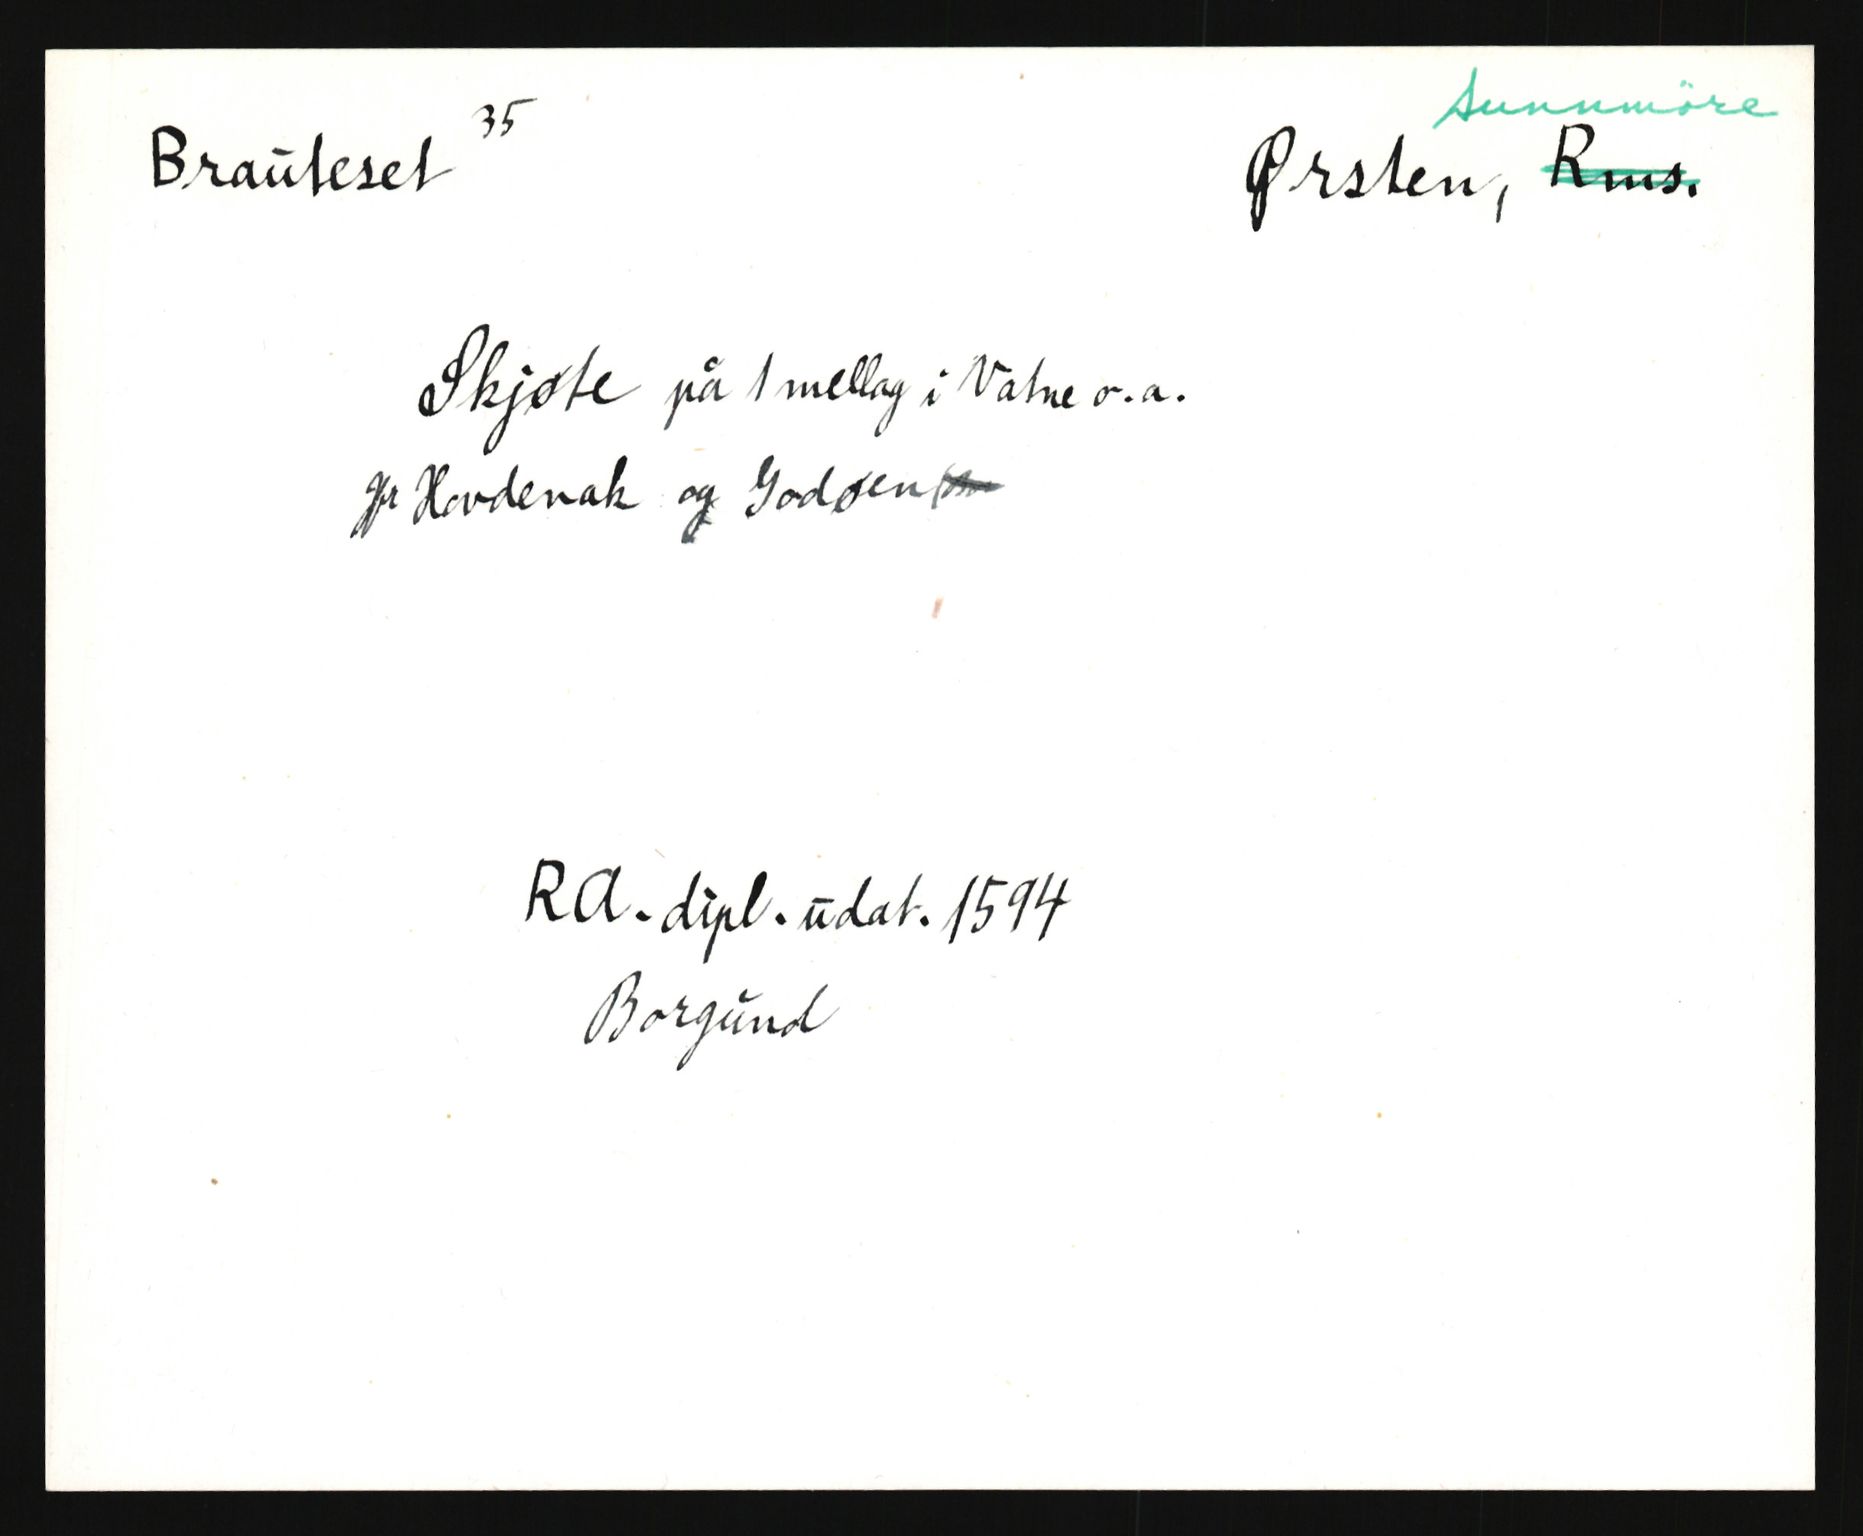 Brauteset 35
Sunnmöre
Ørsten, Rms.
Skjøte på 1 mellag i Vatne o.a.
jfr Hovdenak og Godøen
RA. dipl. udat. 1594
Borgund